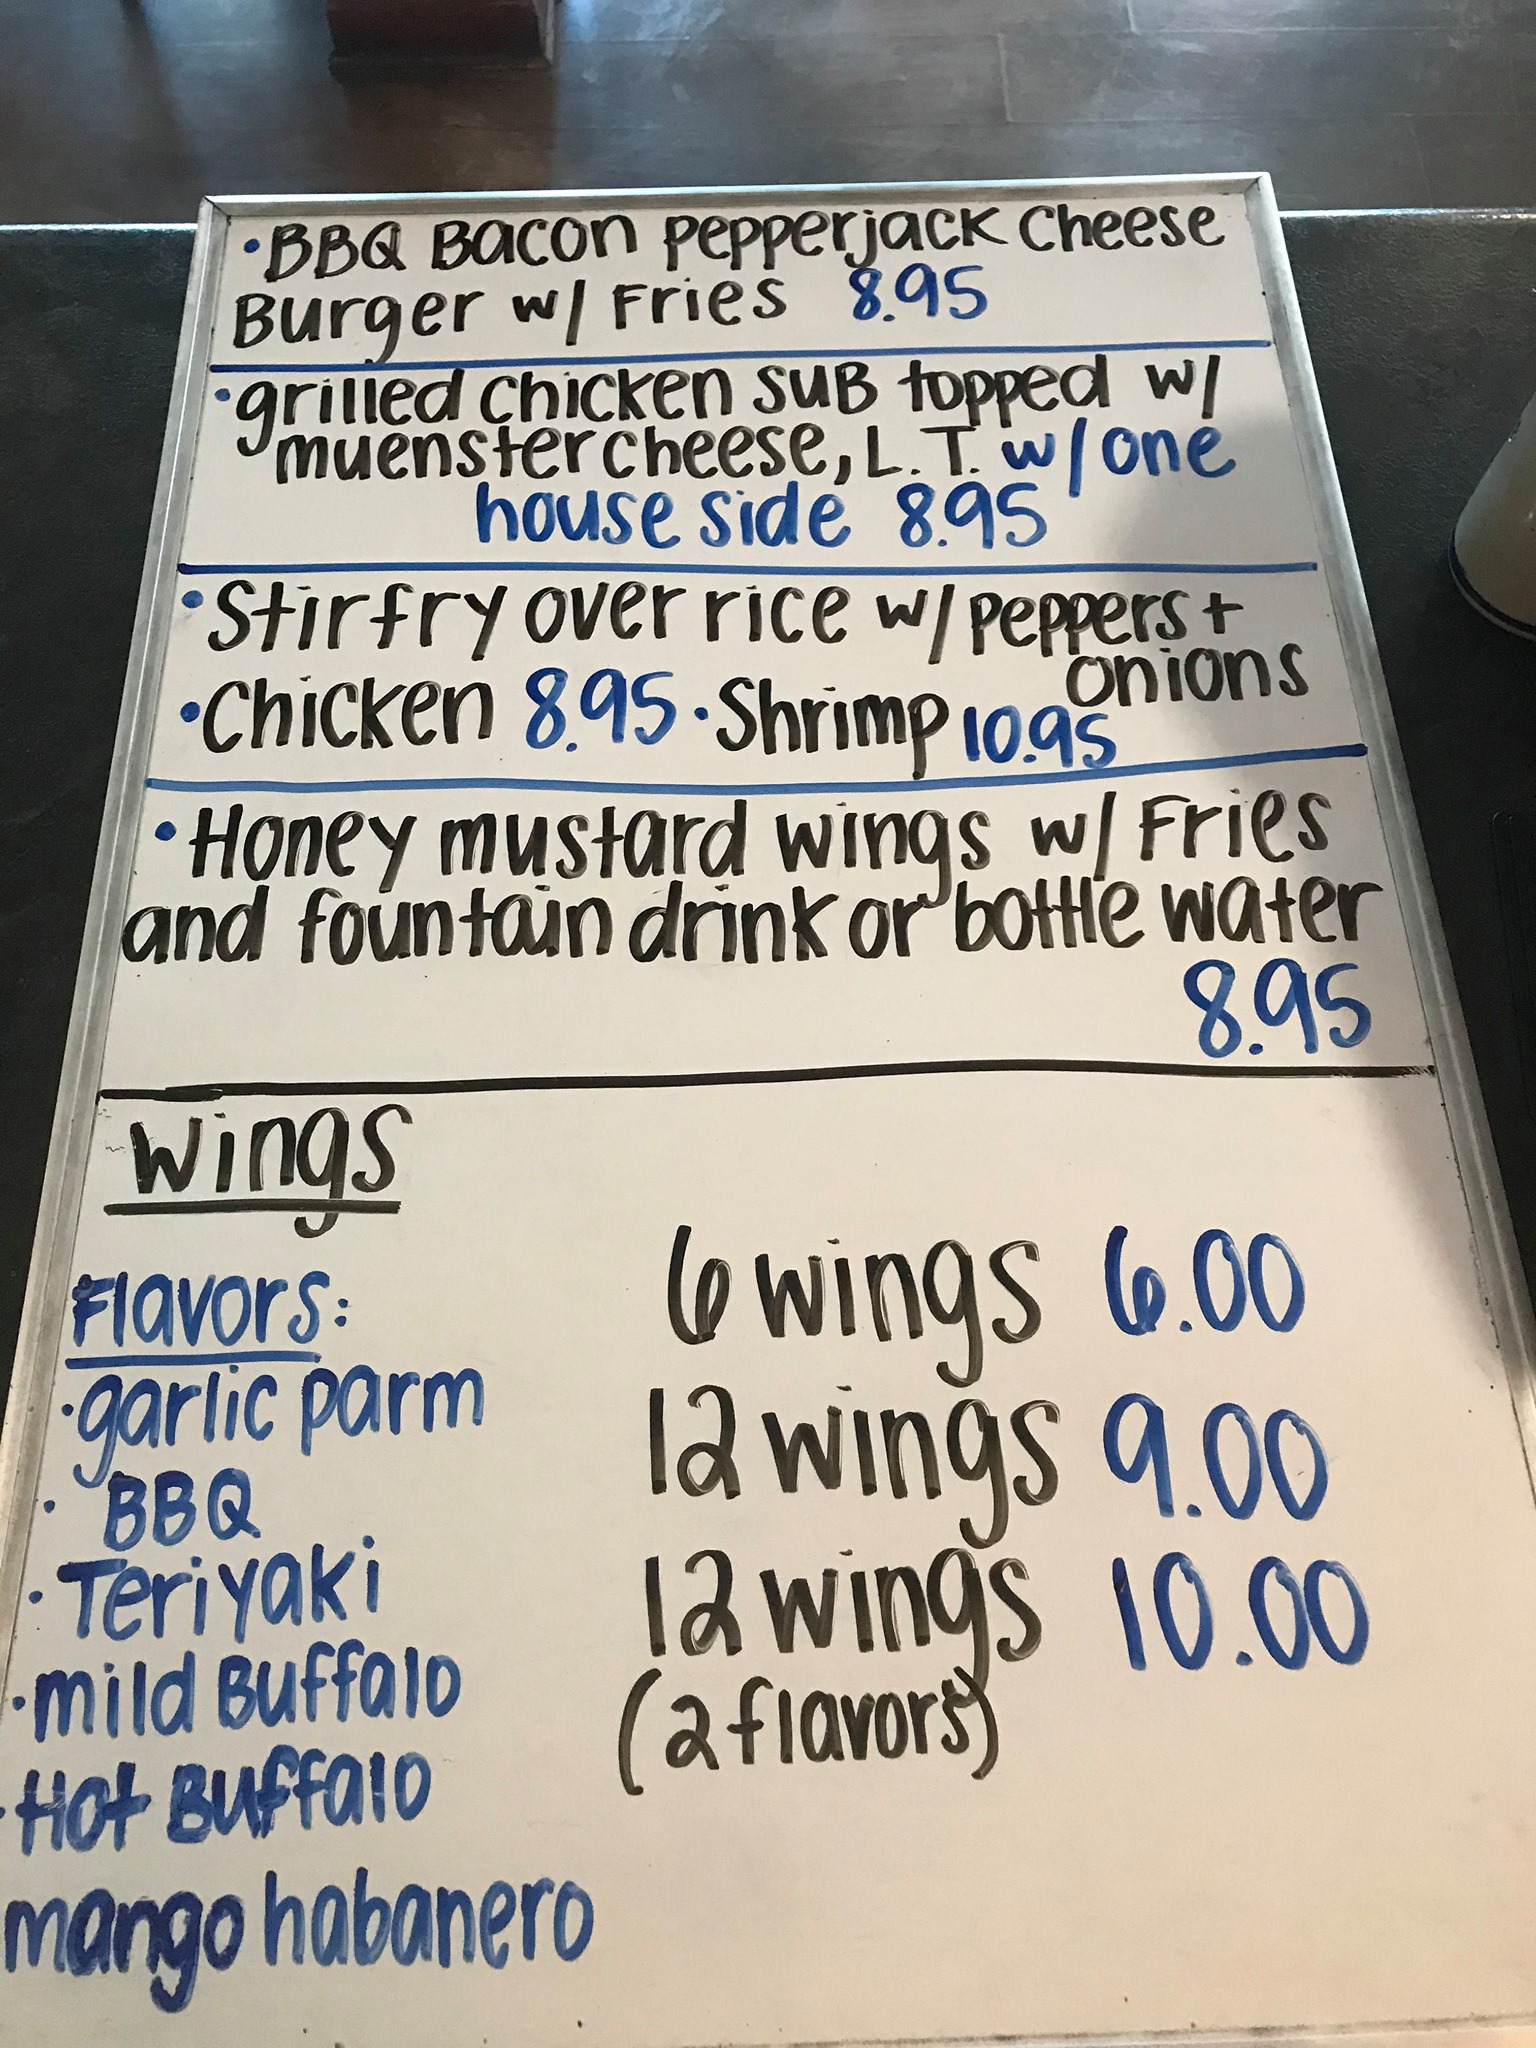 • BBQ Bacon Pepperjack Cheese
Burger w/ Fries 8.95
• grilled chicken SUB topped w/
muenster cheese, L.T. w/ one
house side 8.95
• Stirfry over rice w/ Peppers +
onions
• Chicken 8.95 • Shrimp 10.95
• Honey mustard wings w/ Fries
and fountain drink or bottle water
8.95
Wings
6 wings 6.00
Flavors:
12 wings 9.00
• garlic parm
• BBQ
12 wings 10.00
• Teriyaki
(2 flavors)
• mild Buffalo
• Hot Buffalo
mango habanero